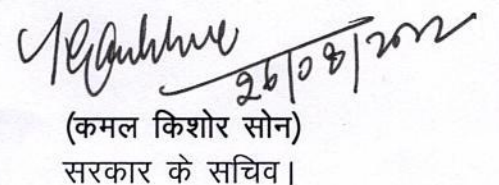 26/08/2022
(कमल किशोर सोन)
सरकार के सचिव।